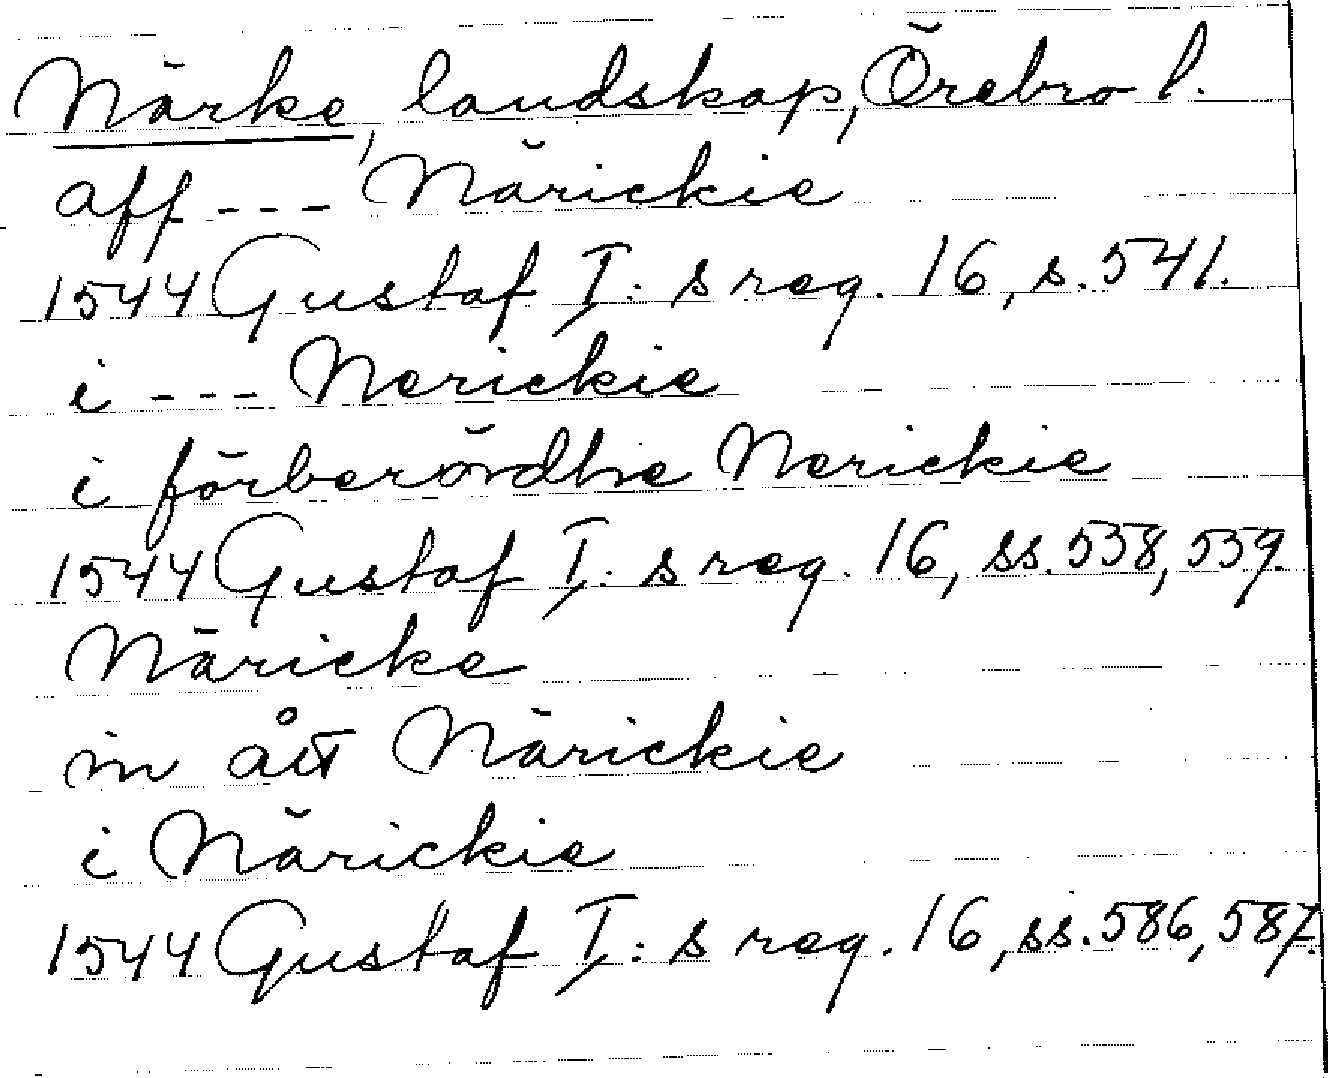 Närke, landskap, Örebro l.
aff --- Närickie
1544 Gustaf I: s reg. 16, s. 541.
i --- Nerickie
i förberördhe Nerickie
1544 Gustaf I: s reg. 16, ss. 538, 539.
Näricke
in ått Närickie
i Närickie
1544 Gustaf I: s reg. 16, ss. 586, 587.